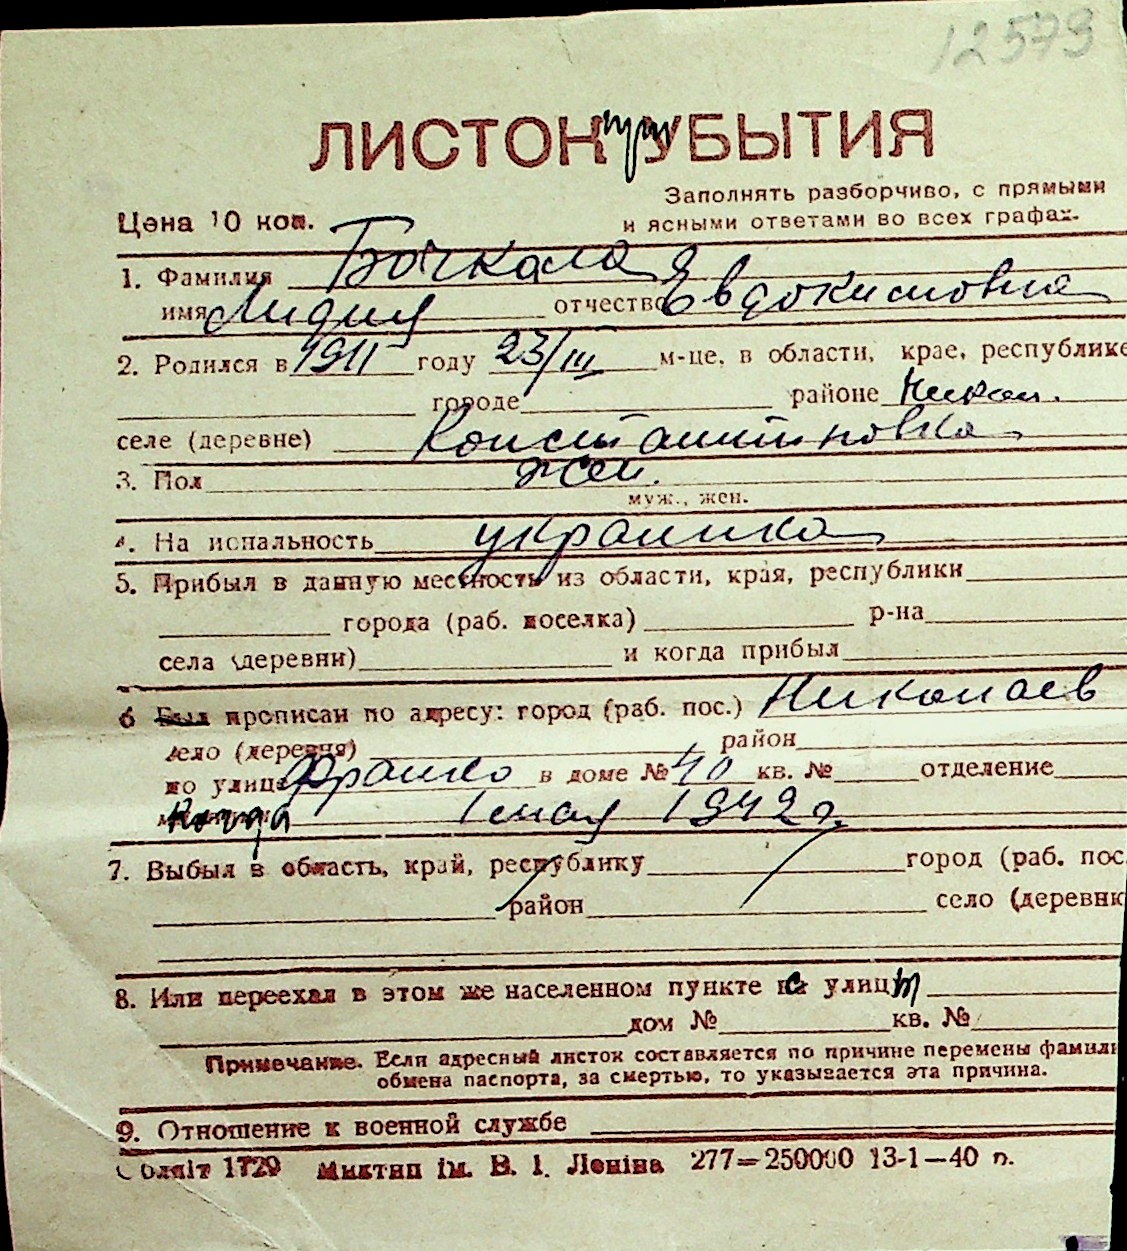 12579
ЛИСТОК при УБЫТИЯ
Заполнять разборчиво, с прямыми
Цена 10 коп. и ясными ответами во всех графах.
1. Фамилия Бочкала
имя Лидия отчество Евдокимовна
2. Родился в 1911 году 23/III м-це, в области, крае, республике
городе районе Никол.
селе (деревне) Константиновка
3. Пол жен.
муж., жен.
4. На иональность украинка
5. Прибыл в данную местность из области, края, республики
города (раб. поселка) р-на
села (деревни) и когда прибыл
6 Был прописан по адресу: город (раб. пос.) Николаев
село (деревня) район
по улице Франко в доме № 40 кв. № отделение
Когда 1 мая 1942 г.
7. Выбыл в область, край, республику город (раб. пос.
район село (деревню
8. Или переехал в этом же населенном пункте с улицы
дом № кв. №
Примечание. Если адресный листок составляется по причине перемены фамили
обмена паспорта, за смертью, то указывается эта причина.
9. Отношение к военной службе
Облліт 1729 Миктип ім. В. І. Леніна 277—250000 13-1—40 р.